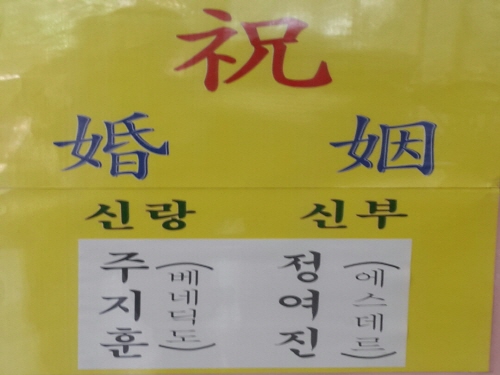 祝
婚 姻
신랑 신부
주지훈 (베네딕도) 정여진 (에스데르)